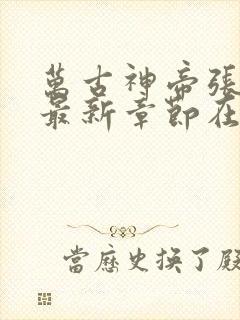 萬古神帝張
最新章節在
當歷史換了殿